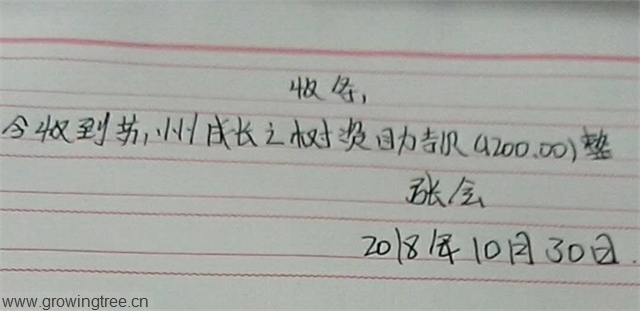 收条,
今收到苏州成长之树资助款(1200.00)整
张会
2018年10月30日.
www.growingtree.cn